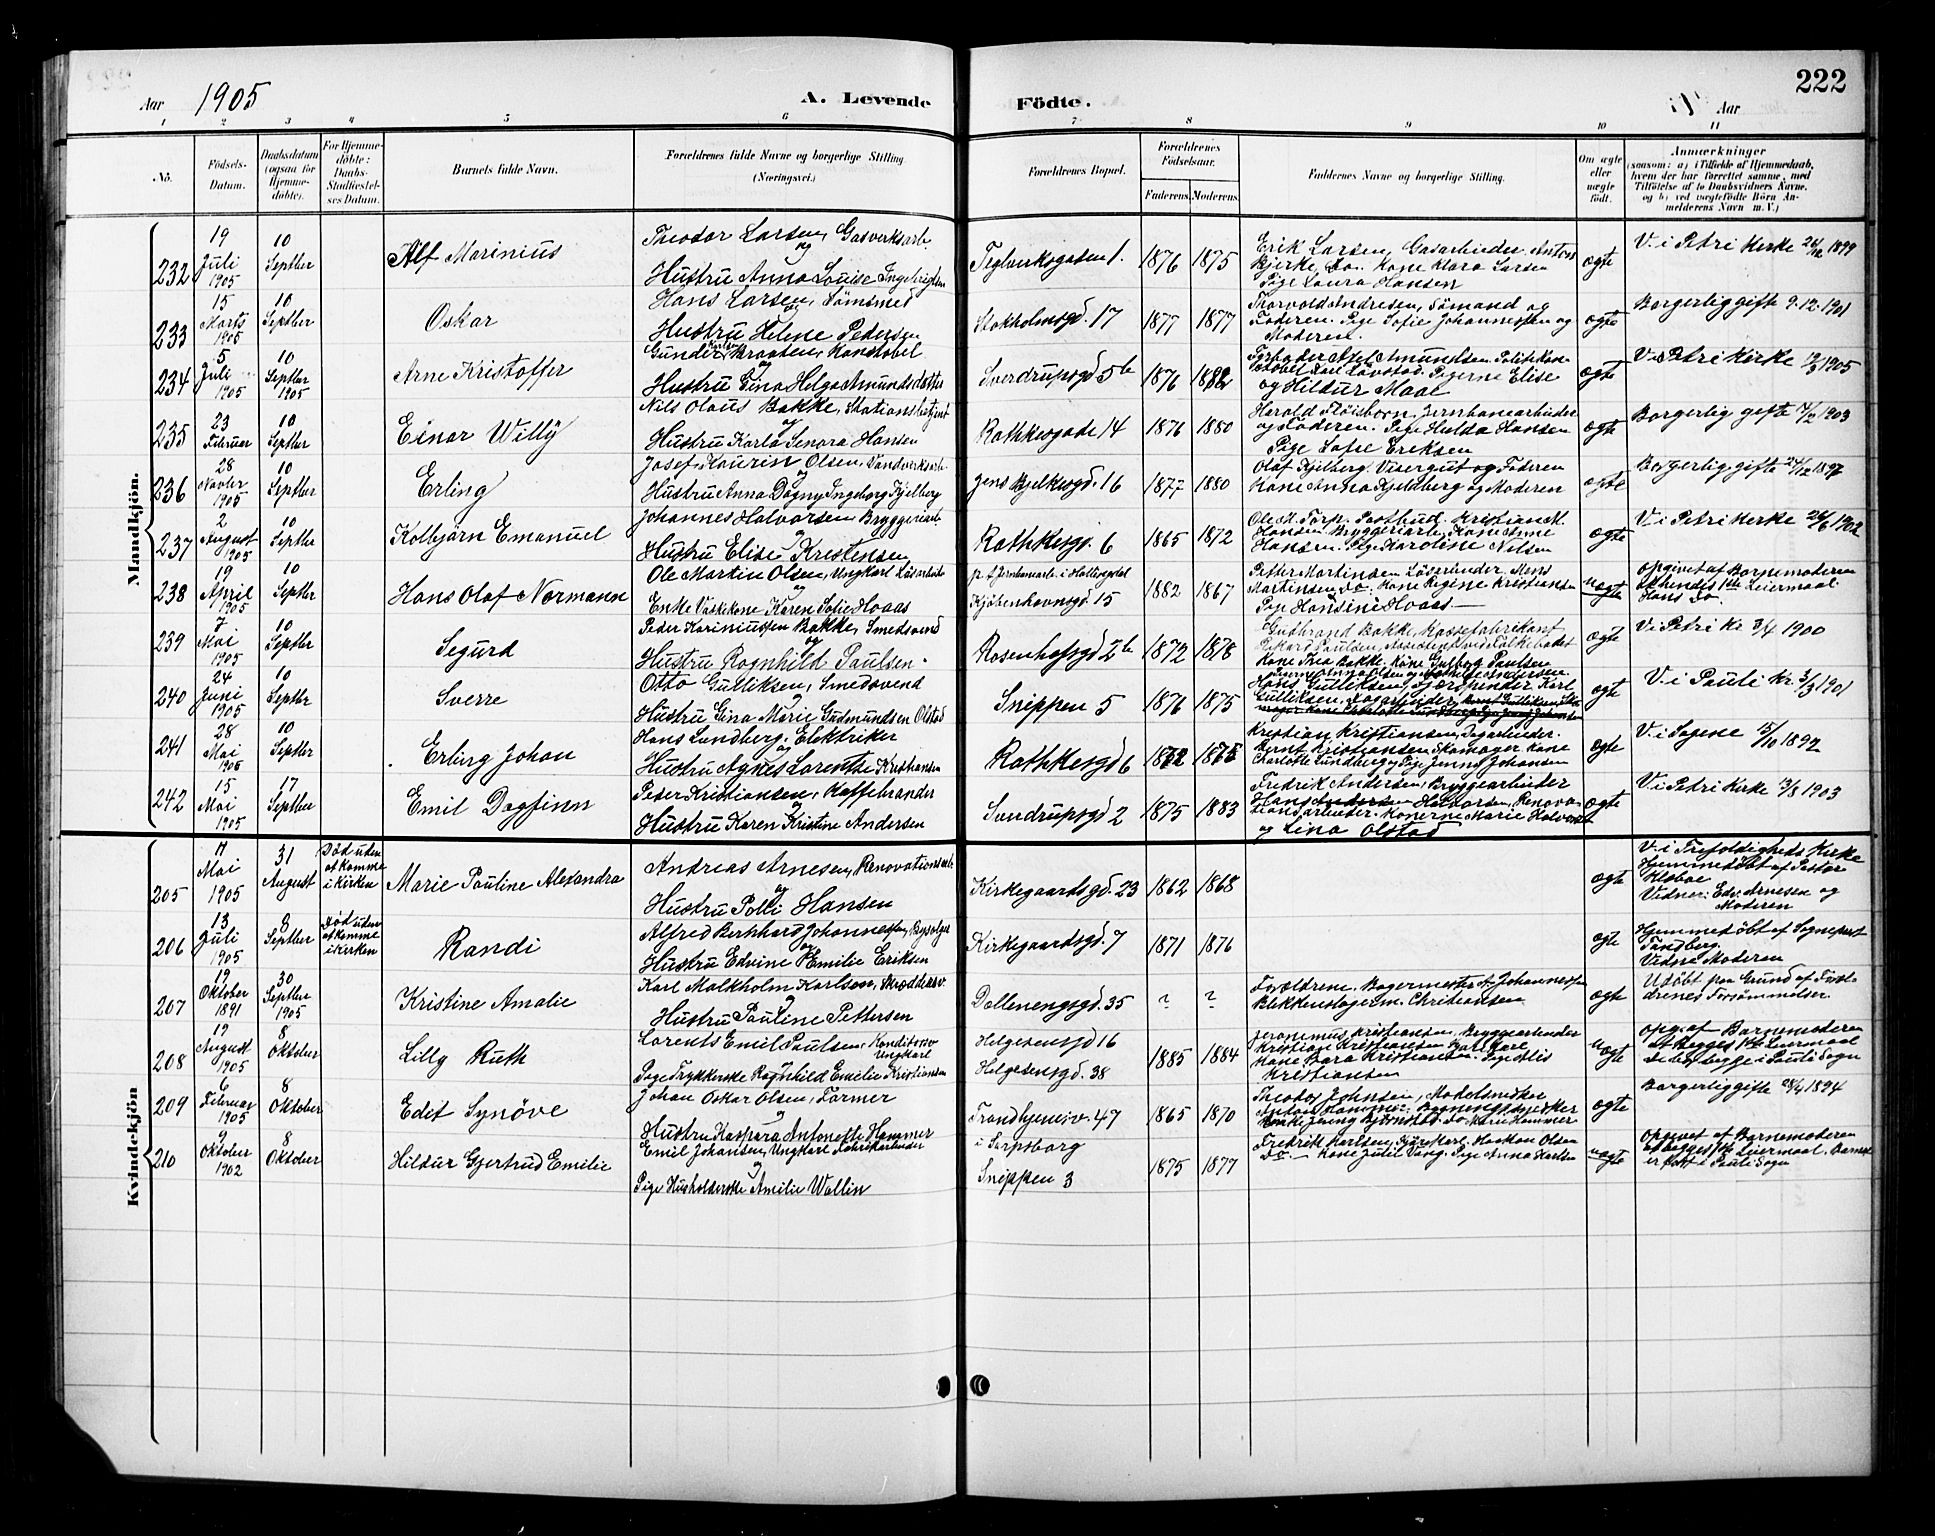 222
Aar 1905 A. Levende Födte. Aar
1 2 3 4 5 6 7 8 9 10 11
No. Födsels-Datum. Daabsdatum (ogsaa for Hjemme-döbte). For Hjemme-döbte: Daabs-Stadfæstel-ses Datum. Barnets fulde Navn. Forældrenes fulde Navne og borgerlige Stilling. (Næringsvei.) Forældrenes Bopæl. Forældrenes Födselsaar. Faderens. Moderens. Faddernes Navne og borgerlige Stilling. Om ægte eller uægte födt. Anmærkninger (saasom: a) i Tilfælde af Hjemmedaab, hvem der har forrettet samme, med Tilföielse af to Daabsvidners Navne. og b) ved uægtefödte Börn An-melderens Navn m. V.)
Mandkjön.
232 19 Juli 1905 10 Septbr Alf Marinius Theodor Larsen, Gasverksarb. og Hustru Anna Louise Ingebrigtsen Teglverksgaden 1. 1876 1875 Erik Larsen, Gasarbeider Anton Bjerke, Do. Kone Klara Larsen Pige Laura Hansen ægte V. i Petri Kirke 26/12 1899
233 15 Marts 1905 10 Septber Oskar Hans Larsen, Sömsmed og Hustru Helene Pedersen Stokholmsgd. 17 1877 1877 Thorvald Andresen, Sömand og Faderen. Pige Sofie Johannessen og Moderen. ægte Borgerlig gifte 9.12.1901
234 5 Juli 1905 10 Septber 1905 Arne Kristoffer Gunder Karlsen Braaten, Konstabel og Hustru Gina Helga Amundsdatter Sverdrupsgd 5b 1876 1882 Fyrbøder Axel Amundsen Politikon-stabel Karl Lövstad. Pigerne Elise og Hildur Moae ægte V. i Petri Kirke 12/3 1905
235 23 Februar 10 Septbr Einar Willy Nils Olaus Bakke, Stationsbetjent og Hustru Karla Senora Hansen Rathkesgade 14 1876 1880 Harald Flöisbonn, Jernbanearbeider og Faderen. Pige Hulda Hansen Pige Sofie Eriksen ægte Borgerlig gifte 7/2 1903
236 28 Novbr 1905 10 Septber Erling Josef Kaurin Olsen, Vandverksarb og Hustru Anna Dagny Ingeborg Kjelberg Jens Bjelkesgd. 16 1877 1880 Olaf Kjelberg. Visergut og Faderen Kone Anna Kjeldberg og Moderen ægte Borgerlig gifte 24/12 1897
237 2 August 1905 10 Septbr Kolbjörn Emanuel Johannes Halvorsen Bryggeriarb og Hustru Elise Kristensen Rathkesgd. 6 1865 1872 Ole M. Torp. Postbud. Kristian M. Hansen Bryggeriarb. Kone Anne Hansen. Pige Karoline Nilsen ægte V. i Petri Kirke 26/6 1902
238 19 April 1905 10 Septbr Hans Olaf Normann Ole Martin Olsen, Ungkarl Lösarbeider Enke Vaskekone Karen Sofie Hoaas p. t. Jernbanearb. i Hallingdal Kjöbenhavnsgd 15 1882 1867 Petter Martinsen Lösarbeider Mons Martinsen, Do. Kone Regine Kristiansen Pige Hansine Hoaas uægte Opgivet af Barnemoderen at hendes 1ste Leiermaal Hans Do.
239 7 Mai 1905 10 Septbr Segurd Peder Kariniussen Bakke, Smedsvend og Hustru Ragnhild Paulsen. Rosenhofsgd 2b 1872 1878 Gudbrand Bakke, Kassefabrikant Kone Thea Bakke. Kone Gulborg Paulsen ægte V. i Petri Kr. 3/4 1900
240 24 Juni 1905 10 Septbr Sverre Otto Gulliksen, Smedsvend Hustru Gina Marie Gudmundsen Olstad Sneppen 5 1876 1875 Hans Gulliksen Karl Gulliksen ægte V. i Pauli Kr. 3/3 1901
241 28 Mai 1905 10 Septbr Erling Johan Hans Lundberg. Elektriker og Hustru Agnes Lorentse Kristiansen Rathkesgd 6 1872 1875 Kristian Kristiansen, Sagarbeider. Bernt Kristiansen Skomager. Kone Charlotte Lundberg og Pige Jenny Johansen ægte V. i Sagene 15/10 1897
242 15 Mai 1905 17 Septbr Emil Dagfinn Peder Kristiansen, Kaffebrander og Hustru Karen Kristine Andersen Sundrupsgd 2 1875 1883 Fredrik Andersen, Bryggearbeider Halvorsen, Renova-tionsarbeider. Konerne Marie Halvorsen og Lina Olstad ægte V. i Petri Kirke 12/8 1903
Kvindekjön
205 17 Mai 1905 31 August Död uden at komme i Kirken Marie Pauline Alexandra Andreas Arnesen, Renovationsarb og Hustru Polli Hansen Kirkegaardsgd. 23 1862 1868 ægte V. i Trefoldigheds Kirke Hjemmedöbt af Pastor Klaboe Vidner: Edv. Arnesen og Moderen
206 13 Juli 1905 8 Septber Död uden at komme i Kirken Randi Alfred Bernhard Johannessen, Bysælger og Hustru Edvine Emilie Eriksen Kirkegaardsgd. 7 1871 1876 ægte Hjemmedöbt af Sognepræst Tandberg. Vidne Moderen
207 19 Oktober 1891 30 Septbr 1905 Kristine Amalie Karl Malkholm Karlson, Skræddersv. og Hustru Pauline Pettersen Dællenengsgd. 35 ? ? Forældrene. Bagermester A. Johannessen Blikkenslagerm. Christiansen ægte Udöbt paa Grund af Foræl-drenes Forsömmelser.
208 19 August 1905 8 Oktober Lilly Ruth Lorents Emil Paulsen, Konditorsv Ungkarl Pige Trykkerske Ragnhild Emilie Kristiansen Helgesensgd 16 Helgesensgd. 38 1885 1884 Jeronimus Kristiansen, Bryggearbeider Kristian Kristiansen Karl Kone Bara Kristiansen. Pige Kristiansen uægte Opg. af Barnemoderen at begges 1ste Leiermaal De bor begge i Pauli Sogn
209 6 Februar 1905 8 Oktober Edit Synöve Johan Oskar Olsen, Farmer og Hustru Kaspara Antonette Hammer Trondhjemsv. 47 1865 1870 Theodor Johnsen, Modelsnedker Anton Hammer. Bygningssnedker Bjørnstad Do Hammer ægte Borgerlig gifte 28/4 1894
210 9 Oktober 1902 8 Oktober Hildur Gjertrud Emilie Emil Johansen, Ungkarl Fabrikarbeider og Pige Husholderske Amilie Wallin i Sarpsborg Sneppen 3 1875 1877 Fredrik Karlsen, Haakon Olsen Do. Kone Julie Pige Anna Karlsen uægte Opgivet af Barnemoderen at begges 1ste Leiermaal. Barnet er födt i Pauli Sogn